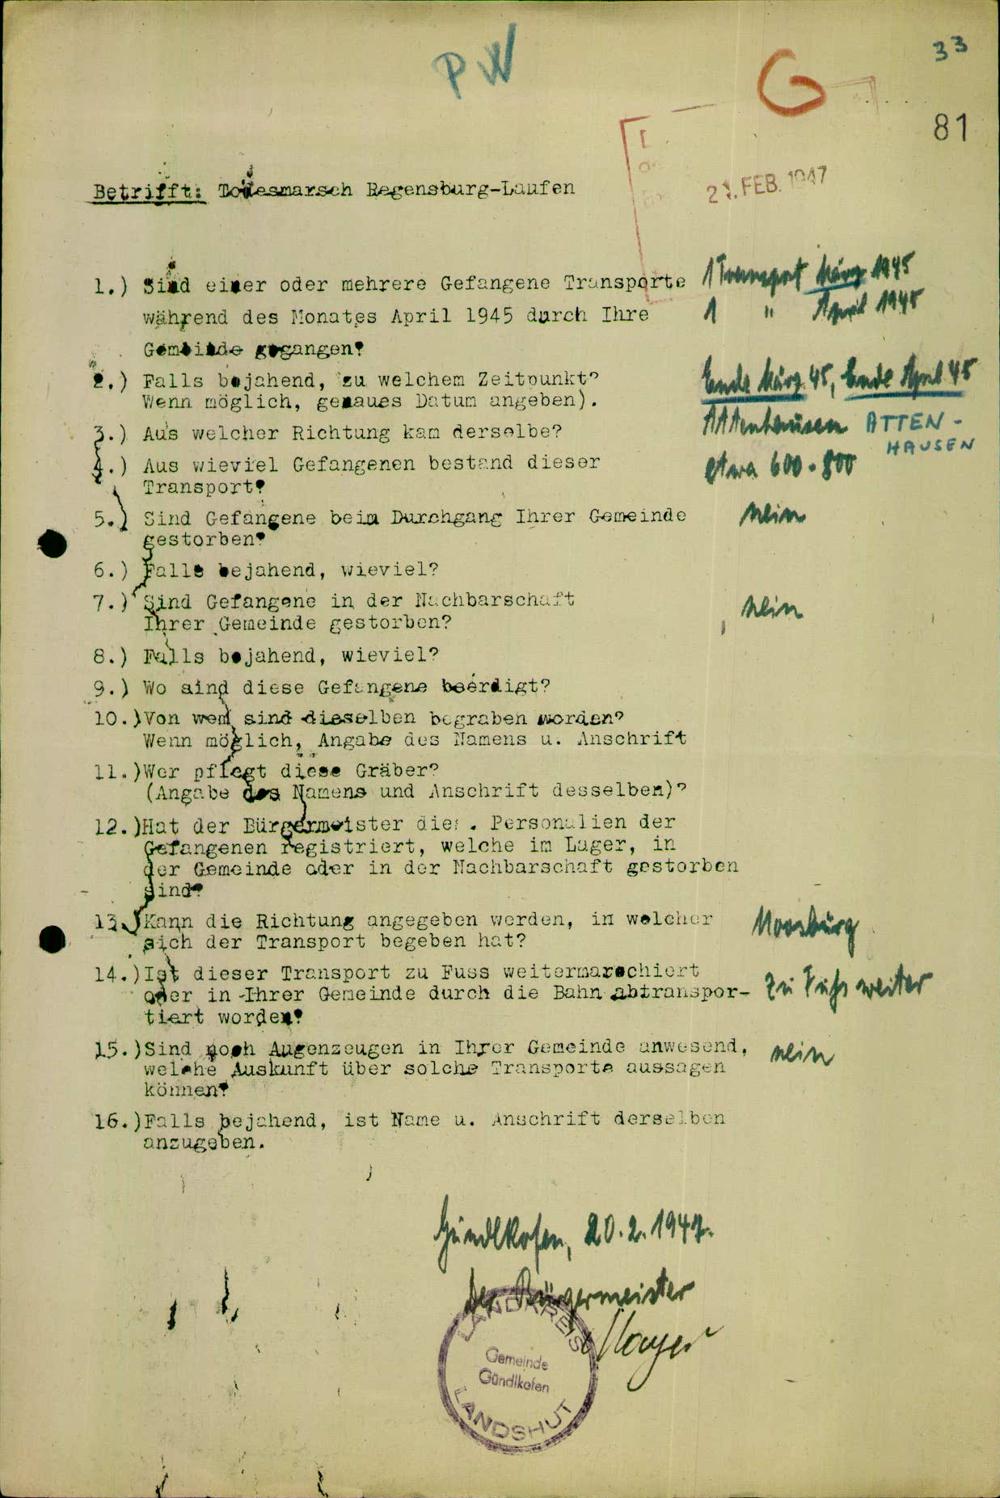 PW
G
33
81
21. FEB. 1947
Betrifft: Todesmarsch Regensburg-Laufen
1.) Sind einer oder mehrere Gefangene Transporte 1 Transport März 1945
während des Monates April 1945 durch Ihre 1 " April 1945
Gemeinde gegangen?
2.) Falls bejahend, zu welchem Zeitpunkt? Ende März 45, Ende April 45
Wenn möglich, genaues Datum angeben).
3.) Aus welcher Richtung kam derselbe? Attenhausen ATTEN-
HAUSEN
4.) Aus wieviel Gefangenen bestand dieser etwa 600-800
Transport?
5.) Sind Gefangene beim Durchgang Ihrer Gemeinde nein
gestorben?
6.) Falls bejahend, wieviel?
7.) Sind Gefangene in der Nachbarschaft nein
Ihrer Gemeinde gestorben?
8.) Falls bejahend, wieviel?
9.) Wo sind diese Gefangene beerdigt?
10.)Von wem sind dieselben begraben worden?
Wenn möglich, Angabe des Namens u. Anschrift
11.)Wer pflegt diese Gräber?
(Angabe des Namens und Anschrift desselben)?
12.)Hat der Bürgermeister die Personalien der
Gefangenen registriert, welche im Lager, in
der Gemeinde oder in der Nachbarschaft gestorben
sind?
13.)Kann die Richtung angegeben werden, in welcher Moosburg
sich der Transport begeben hat?
14.)Ist dieser Transport zu Fuss weitermarschiert zu Fuß weiter
oder in Ihrer Gemeinde durch die Bahn abtranspor-
tiert worden?
15.)Sind noch Augenzeugen in Ihrer Gemeinde anwesend, nein
welche Auskunft über solche Transporte aussagen
können?
16.)Falls bejahend, ist Name u. Anschrift derselben
anzugeben.
Gündlkofen, 20.2.1947.
Der Bürgermeister
Mayer
LANDKREIS
Gemeinde
Gündlkofen
LANDSHUT